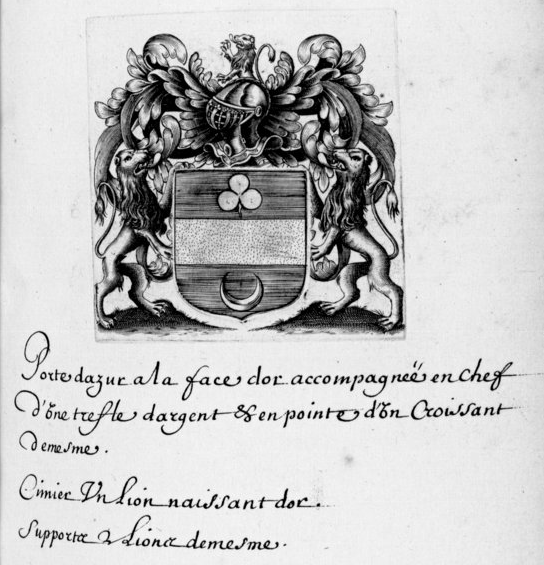 Porte dazur a la face dor accompagneë en chef
d'vne trefle dargent & en pointe d'vn Croissant
demesme.
Cimier Vn lion naissant dor.
Supports 2 lions demesme.